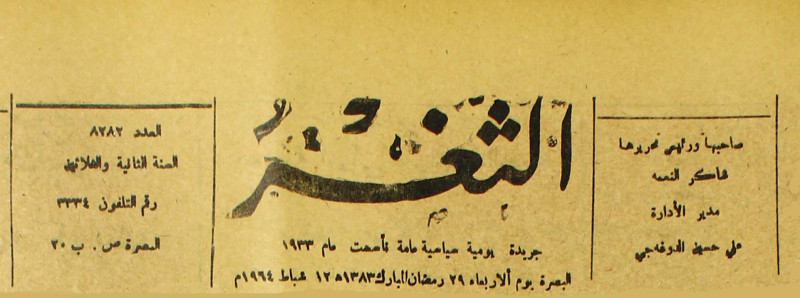 صاحبها ورئيس تحريرها
شاكر النعمه
مدير الأدارة
علي حسين الدوغه‌جي
الثغر
جريدة يومية سياسية عامة تأسست عام ١٩٣٣
البصرة يوم ألاربعاء ٢٩ رمضان المبارك ١٣٨٣ه ١٢ شباط ١٩٦٤م
العدد ٨٢٨٢
السنة الثانية والثلاثين
رقم التلفون ٣٣٣٤
البصرة ص . ب ٢٠